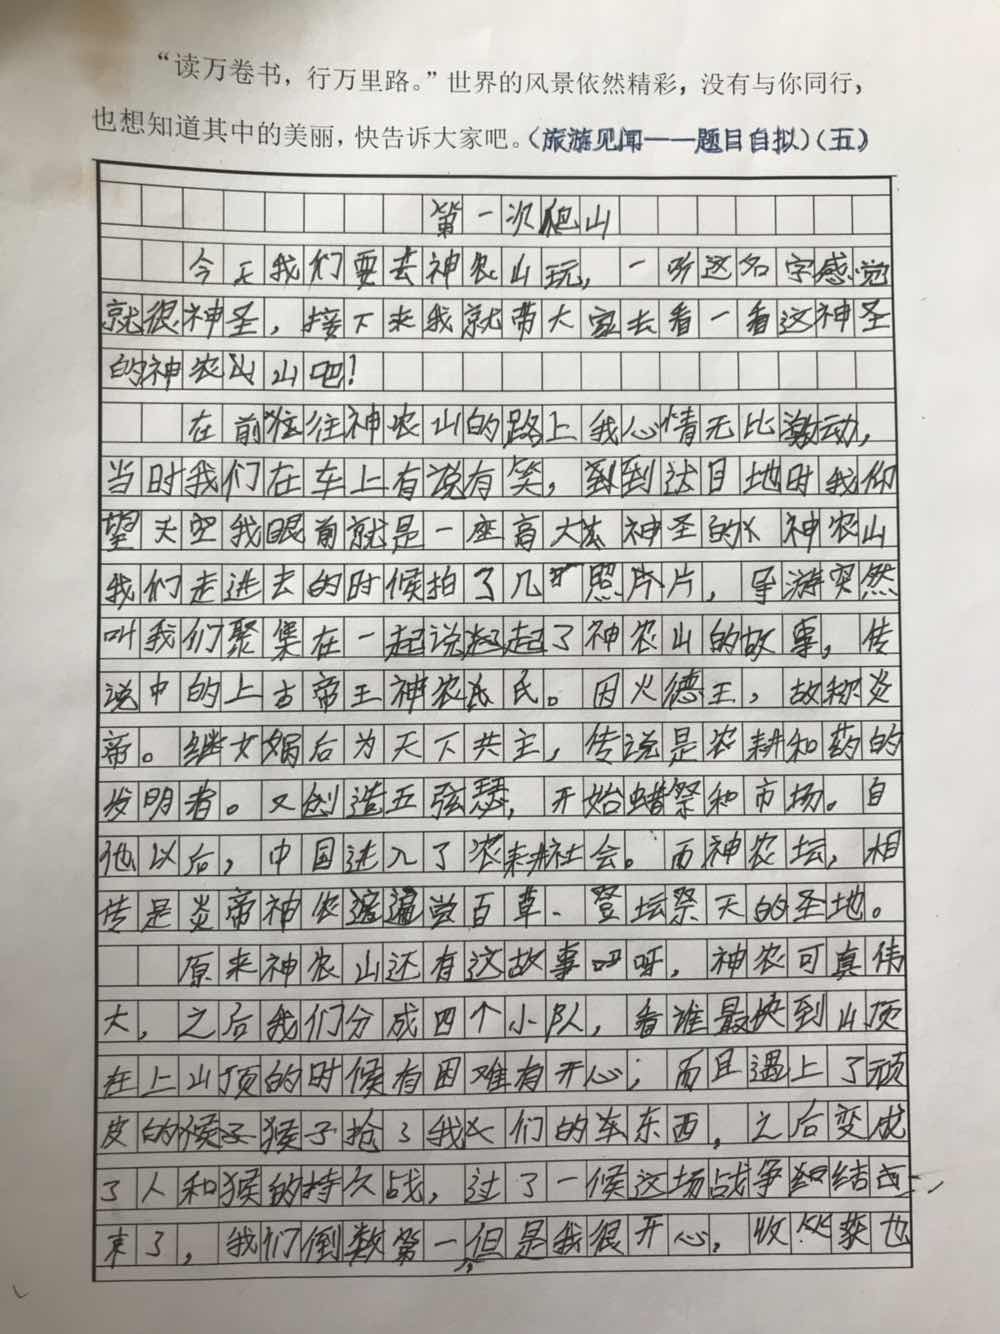 “读万卷书，行万里路。”世界的风景依然精彩，没有与你同行，
也想知道其中的美丽，快告诉大家吧。（旅游见闻——题目自拟）（五）
第一次爬山
今天我们要去神农山玩，一听这名字感觉
就很神圣，接下来我就带大家去看一看这神圣
的神农山吧！
在前往神农山的路上我心情无比激动，
当时我们在车上有说有笑，到达目地时我仰
望天空我眼前就是一座高大神圣的神农山
我们走进去的时候拍了几照片，导游突然
叫我们聚集在一起说起了神农山的故事，传
说中的上古帝王神农氏。因火德王，故称炎
帝。继女娲后为天下共主，传说是农耕和药的
发明者。又创造五弦瑟，开始蜡祭和市场。自
他以后，中国进入了农耕社会。而神农坛，相
传是炎帝神农遍尝百草、登坛祭天的圣地。
原来神农山还有这故事呀，神农可真伟
大，之后我们分成四个小队，看谁最快到山顶
在上山顶的时候有困难有开心；而且遇上了顽
皮的猴子抢了我们的东西，之后变成
了人和猴的持久战，过了一候这场战争结
束了，我们倒数第一，但是我很开心，收获也